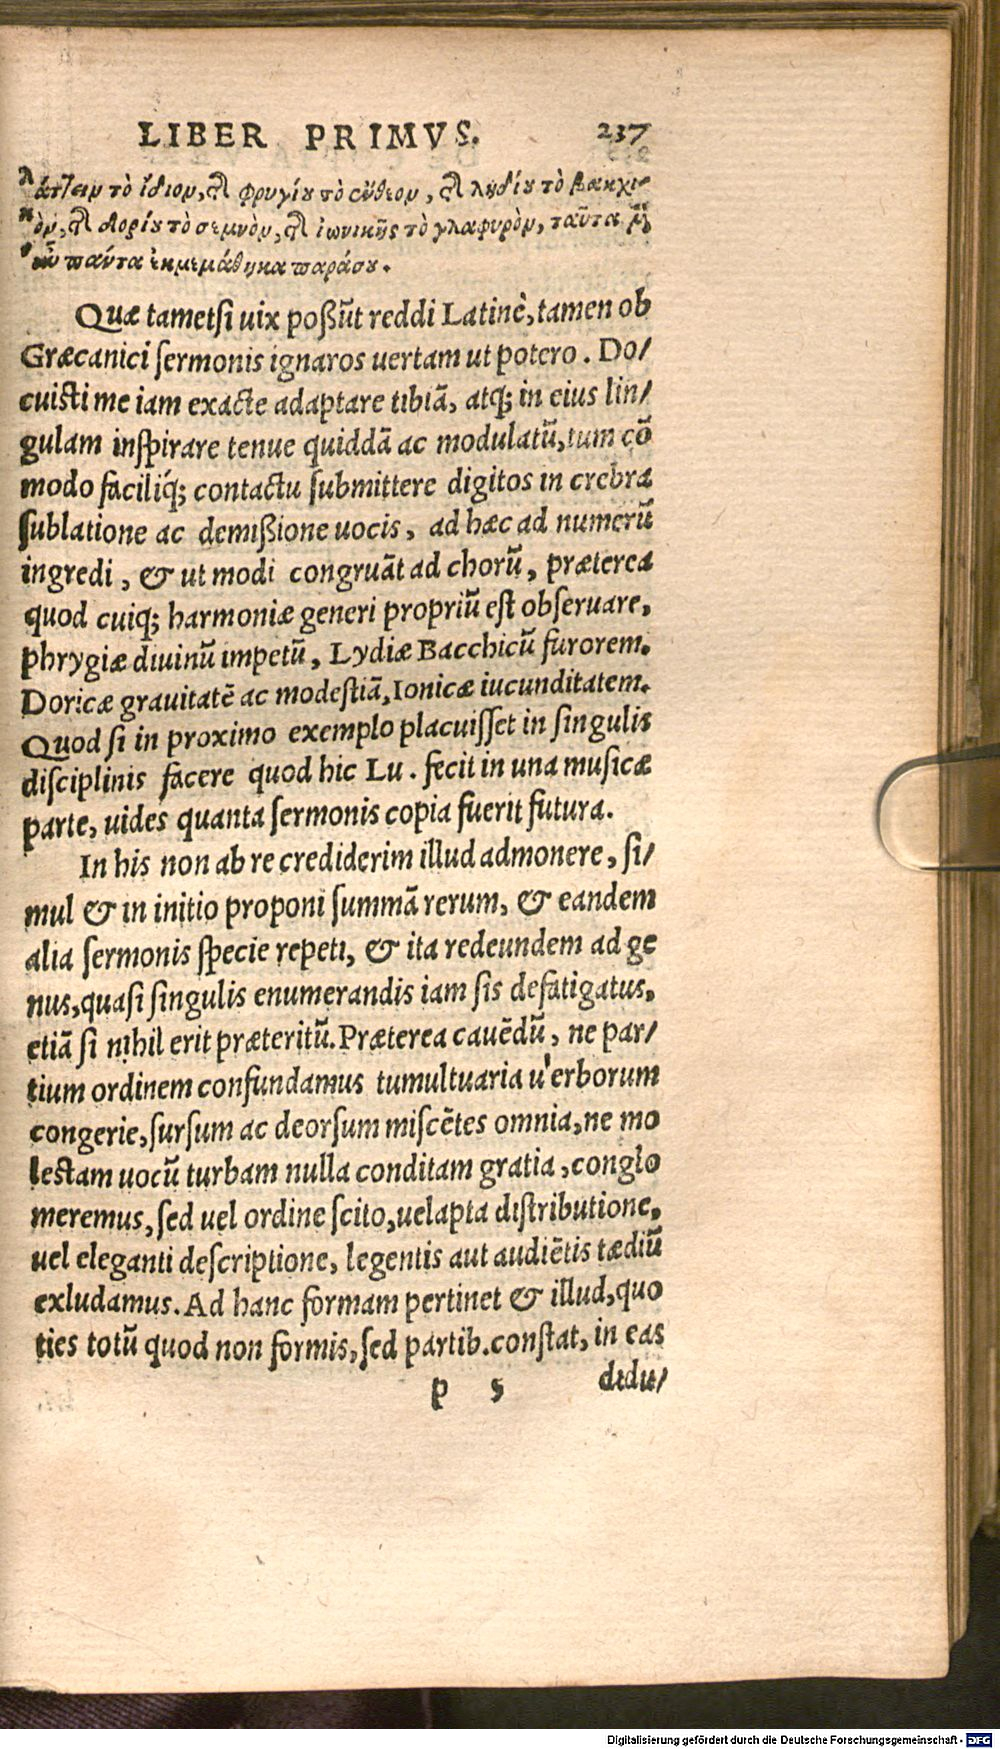 LIBER PRIMVS. 237
λάττειν τὸ ἴδιον, τῆς φρυγίου τὸ ἔνθεον, τῆς λυδίου τὸ βακχι-
κὸν, τῆς δορίου τὸ σεμνὸν, τῆς ἰωνικῆς τὸ γλαφυρὸν, ταῦτα μὲν
οὖν πάντα ἐκμεμάθηκα παράσου.
Quæ tametsi uix poßũt reddi Latinè, tamen ob
Græcanici ſermonis ignaros uertam ut potero. Do/
cuisti me iam exacte adaptare tibiã, atq; in eius lin/
gulam inſpirare tenue quiddã ac modulatũ, tum cõ
modo faciliq́; contactu ſubmittere digitos in crebra
ſublatione ac demißione uocis, ad hæc ad numerũ
ingredi, & ut modi congruãt ad chorũ, præterea
quod cuiq; harmoniæ generi propriũ eſt obſeruare,
phrygiæ diuinũ impetũ, Lydiæ Bacchicũ furorem.
Doricæ grauitatẽ ac modeſtiã, Ionicæ iucunditatem.
Quod ſi in proximo exemplo placuiſſet in ſingulis
diſciplinis facere quod hic Lu. fecit in una muſicæ
parte, uides quanta ſermonis copia fuerit futura.
In his non ab re crediderim illud admonere, ſi/
mul & in initio proponi ſummã rerum, & eandem
alia ſermonis ſpecie repeti, & ita redeundem ad ge
nus, quaſi ſingulis enumerandis iam ſis defatigatus,
etiã ſi nihil erit præteritũ. Præterea cauẽdũ, ne par/
tium ordinem confundamus tumultuaria u'erborum
congerie, ſurſum ac deorſum miſcẽtes omnia, ne mo
lestam uocũ turbam nulla conditam gratia, conglo
meremus, ſed uel ordine ſcito, uelapta diſtributione,
uel eleganti deſcriptione, legentis aut audiẽtis tædiũ
exludamus. Ad hanc formam pertinet & illud, quo
ties totũ quod non formis, ſed partib. conſtat, in eas
p 5 didu/
Digitalisierung gefördert durch die Deutsche Forschungsgemeinschaft - DFG